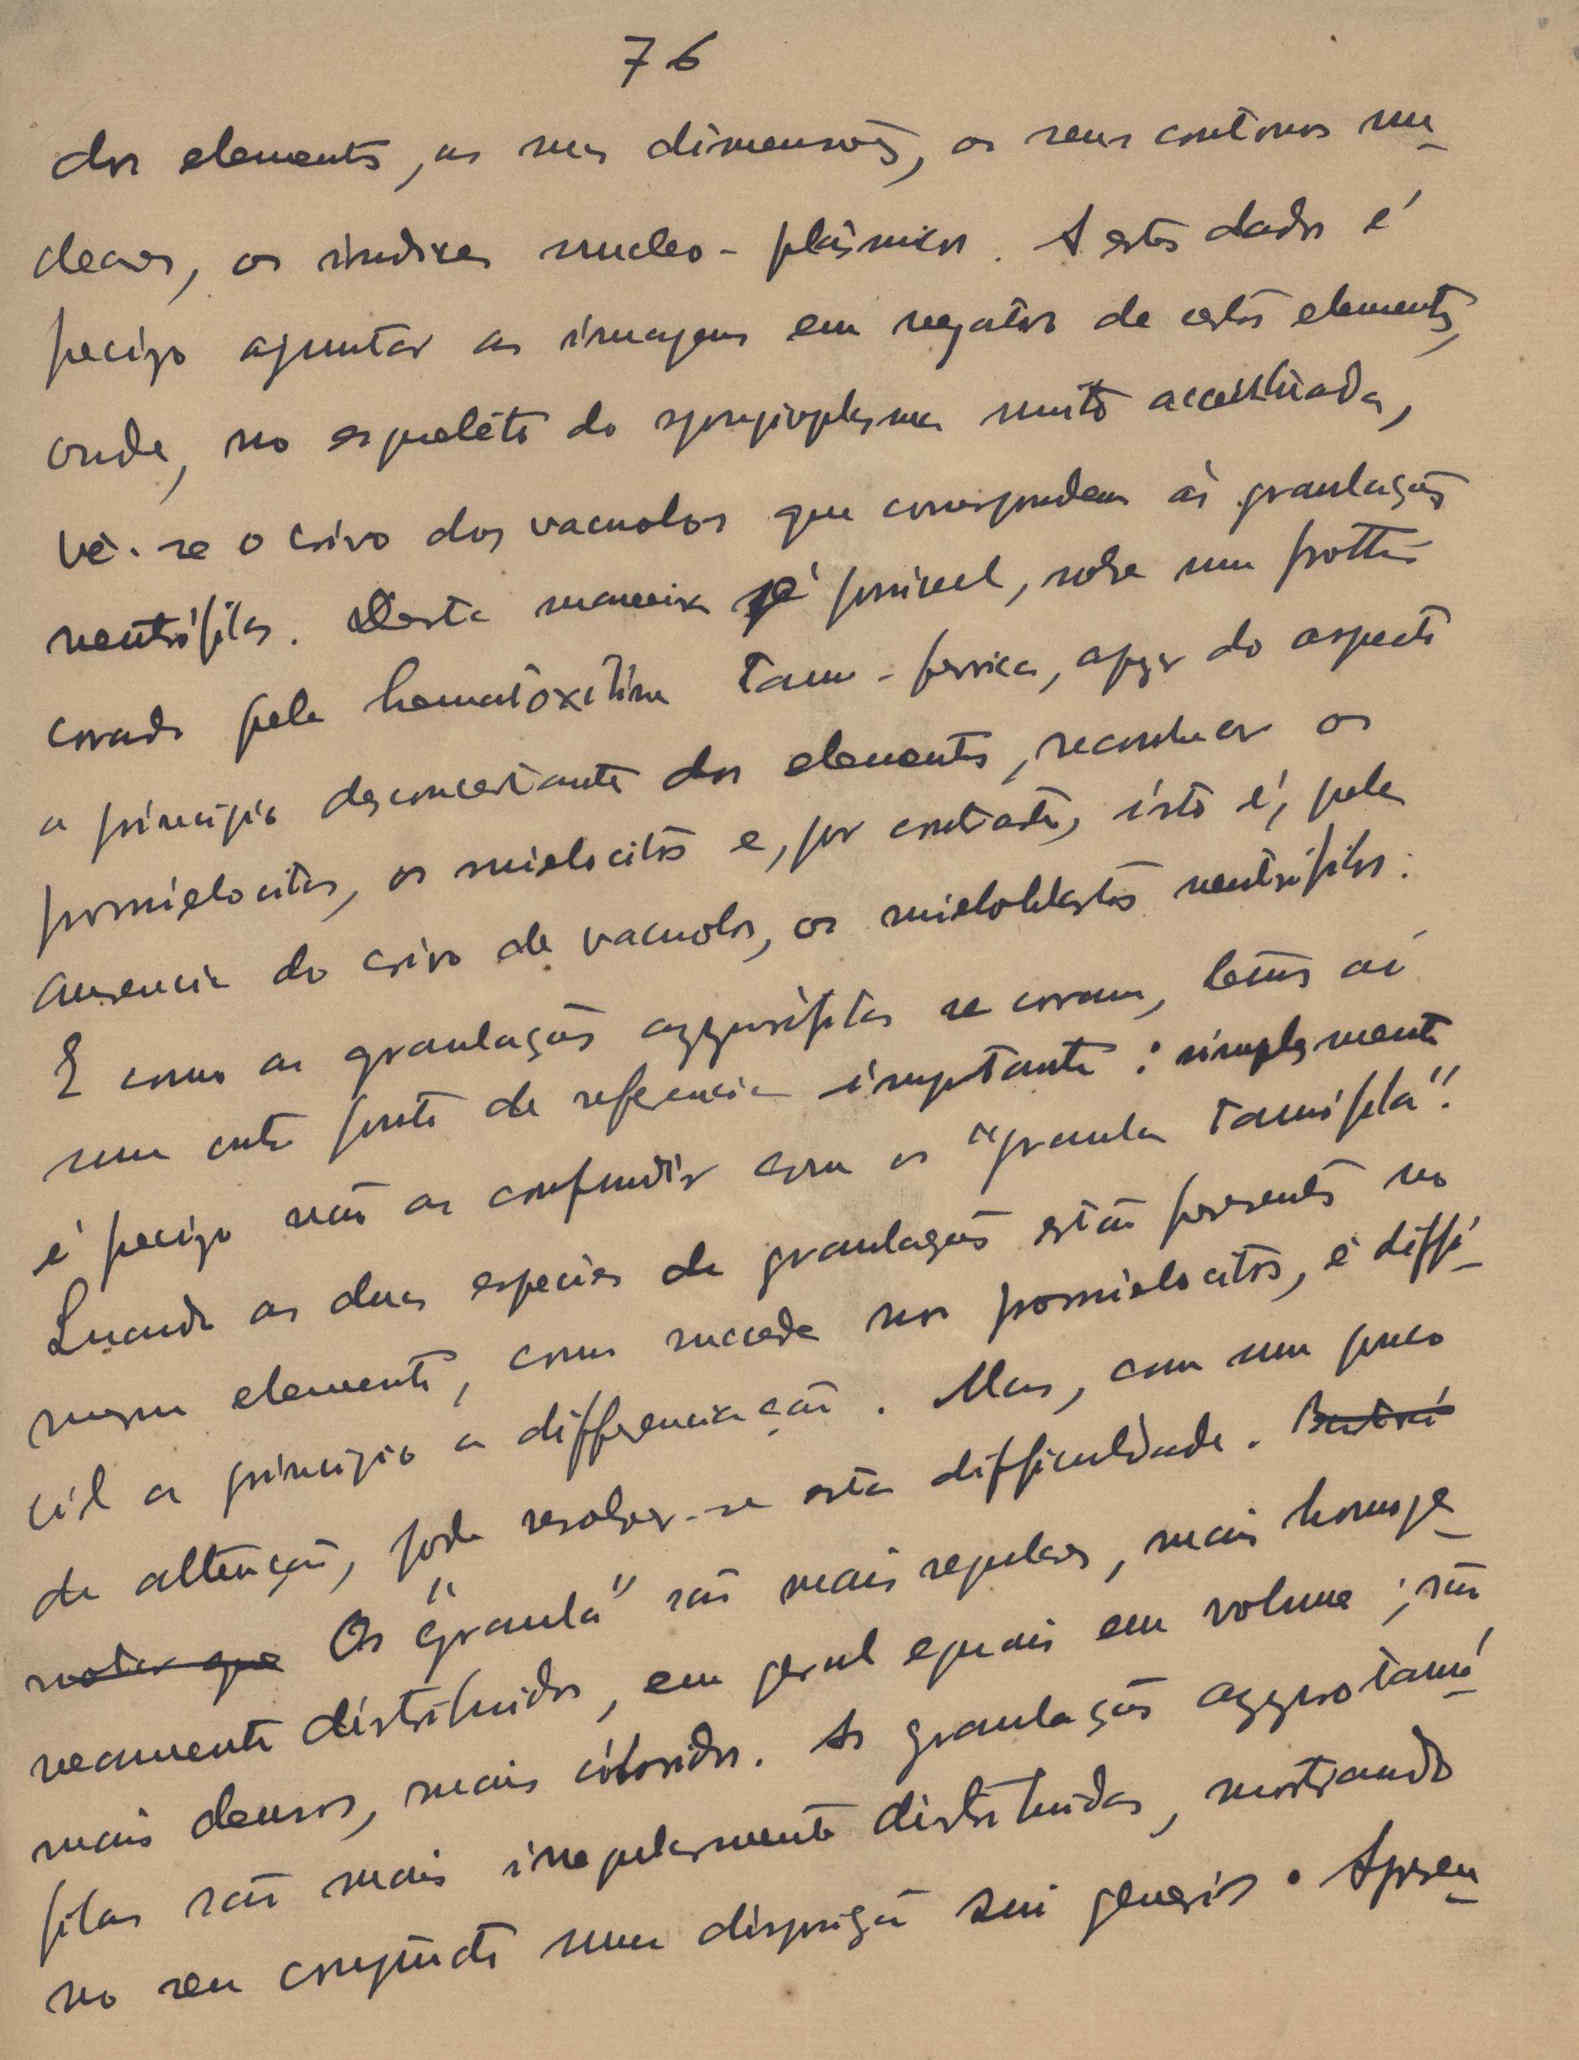 76
dos elementos, as suas dimensões, os seus contornos nu-
cleares, os indices nucleo-plásmicos. A estes dados é
preciso ajuntar as imagens em negativo de certos elementos,
onde, no esqueléto do spongioplasma muito accentuada,
vê-se o crivo dos vacuolos que correspondem ás granulações
neutrófilas. Desta maneira é possivel, sobre um frottis
corado pela hematoxilina tano-ferrica, apezar do aspecto
a principio desconcertante dos elementos, reconhecer os
promielocitos, os mielocitos e, por contraste, isto é, pela
ausencia do crivo de vacuolos, os mieloblastos neutrófilos.
E como as granulações azzurófilas se coram, temos aí
um outro ponto de referencia importante: simplesmente
é preciso não as confundir com os "granula tanófila".
Quando as duas especies de granulações estão presentes no
mesmo elemento, como succede nos promielocitos, é diffi-
cil a principio a differenciação. Mas, com um pouco
de attenção, pode resolver-se esta difficuldade.
notar que Os "granula" são mais regulares, mais homoge-
neamente distribuidos, em geral eguais em volume; são
mais densos, mais coloridos. As granulações azzurotanó-
filas são mais irregularmente distribuidas, mostrando
no seu conjuncto uma disposição sui generis. Apresen-